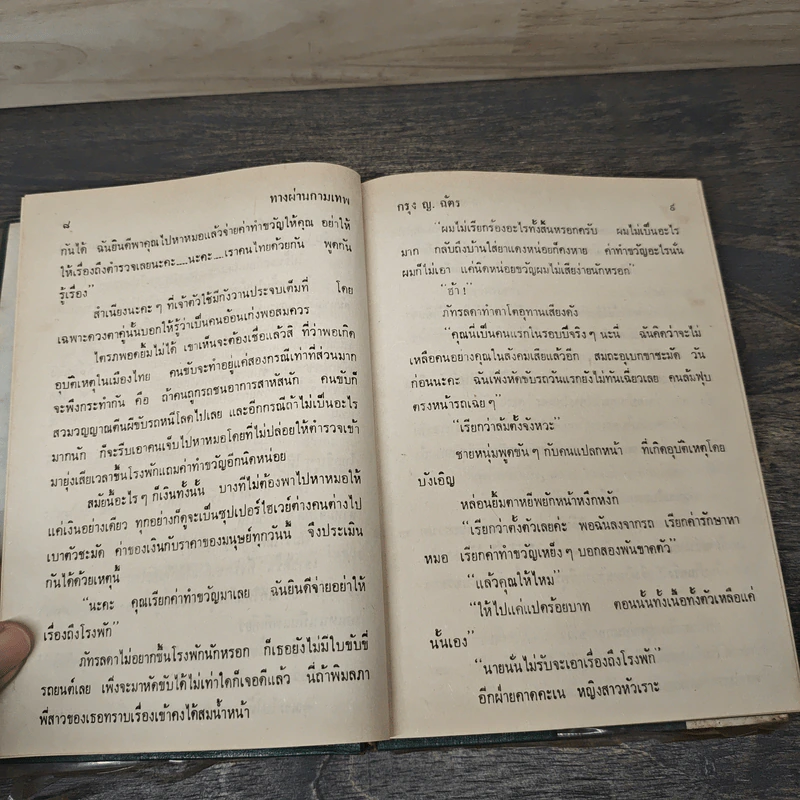 ๘
ทางผ่านกามเทพ
กันได้ ฉันยินดีพาคุณไปหาหมอแล้วจ่ายค่าทำขวัญให้คุณ อย่าให้
ให้เรื่องถึงตำรวจเลยนะคะ....นะคะ....เราคนไทยด้วยกัน พูดกัน
รู้เรื่อง”
สำเนียงนะคะ ๆ ที่เจ้าตัวใช้มีกังวานประจบเต็มที่ โดย
เฉพาะดวงตาคู่นั้นบอกให้รู้ว่าเป็นคนอ้อนเก่งพอสมควร
ไตรภพอดยิ้มไม่ได้ เขาเห็นจะต้องเชื่อแล้วสิ ที่ว่าพอเกิด
อุบัติเหตุในเมืองไทย คนขับจะทำอยู่แค่สองกรณีเท่าที่ส่วนมาก
จะพึงกระทำกัน คือ ถ้าคนถูกรถชนอาการสาหัสนัก คนขับก็
สวมวิญญาณตีนผีขับรถหนีโลดไปเลย และอีกกรณีถ้าไม่เป็นอะไร
มากนัก ก็จะรีบเอาคนเจ็บไปหาหมอโดยที่ไม่ปล่อยให้ตำรวจเข้า
มายุ่งเสียเวลาขึ้นโรงพักแถมค่าทำขวัญอีกนิดหน่อย
สมัยนี้อะไร ๆ ก็เงินทั้งนั้น บางทีไม่ต้องพาไปหาหมอให้
แค่เงินอย่างเดียว ทุกอย่างก็ดูจะเป็นซุปเปอร์ไฮเวย์ต่างคนต่างไป
เบาตัวชะมัด ค่าของเงินกับราคาของมนุษย์ทุกวันนี้ จึงประเมิน
กันได้ด้วยเหตุนี้
“นะคะ คุณเรียกค่าทำขวัญมาเลย ฉันยินดีจ่ายอย่าให้
เรื่องถึงโรงพัก”
ภัทรลดาไม่อยากขึ้นโรงพักนักหรอก ก็เธอยังไม่มีใบขับขี่
รถยนต์เลย เพิ่งจะมาหัดขับได้ไม่เท่าใดก็เจอดีแล้ว นี่ถ้าพิมลภา
พี่สาวของเธอทราบเรื่องเข้าคงได้สมน้ำหน้า
กรุง ญ. ฉัตร
๙
“ผมไม่เรียกร้องอะไรทั้งสิ้นหรอกครับ ผมไม่เป็นอะไร
มาก กลับถึงบ้านใส่ยาแดงหน่อยก็คงหาย ค่าทำขวัญอะไรนั่น
ผมก็ไม่เอา แค่นิดหน่อยขวัญผมไม่เสียง่ายนักหรอก”
“ฮ้า !”
ภัทรลดาทำตาโตอุทานเสียงดัง
“คุณนี่เป็นคนแรกในรอบปีจริง ๆ นะนี่ ฉันคิดว่าจะไม่
เหลือคนอย่างคุณในสังคมเสียแล้วอีก สมถะอุเบกขาชะมัด วัน
ก่อนนะคะ ฉันเพิ่งหัดขับรถวันแรกยังไม่ทันเฉี่ยวเลย คนล้มฟุบ
ตรงหน้ารถเฉย ๆ”
“เรียกว่าล้มตั้งจังหวะ”
ชายหนุ่มพูดขัน ๆ กับคนแปลกหน้า ที่เกิดอุบัติเหตุโดย
บังเอิญ
หล่อนยิ้มตาหยีพยักหน้าหงึกหงัก
“เรียกว่าตั้งตัวเลยค่ะ พอฉันลงจากรถ เรียกค่ารักษาหา
หมอ เรียกค่าทำขวัญเหยง ๆ บอกสองพันขาดตัว”
“แล้วคุณให้ไหม”
“ให้ไปแค่แปดร้อยบาท ตอนนั้นทั้งเนื้อทั้งตัวเหลือแค่
นั้นเอง”
“นายนั่นไม่รับจะเอาเรื่องถึงโรงพัก”
อีกฝ่ายคาดคะเน หญิงสาวหัวเราะ